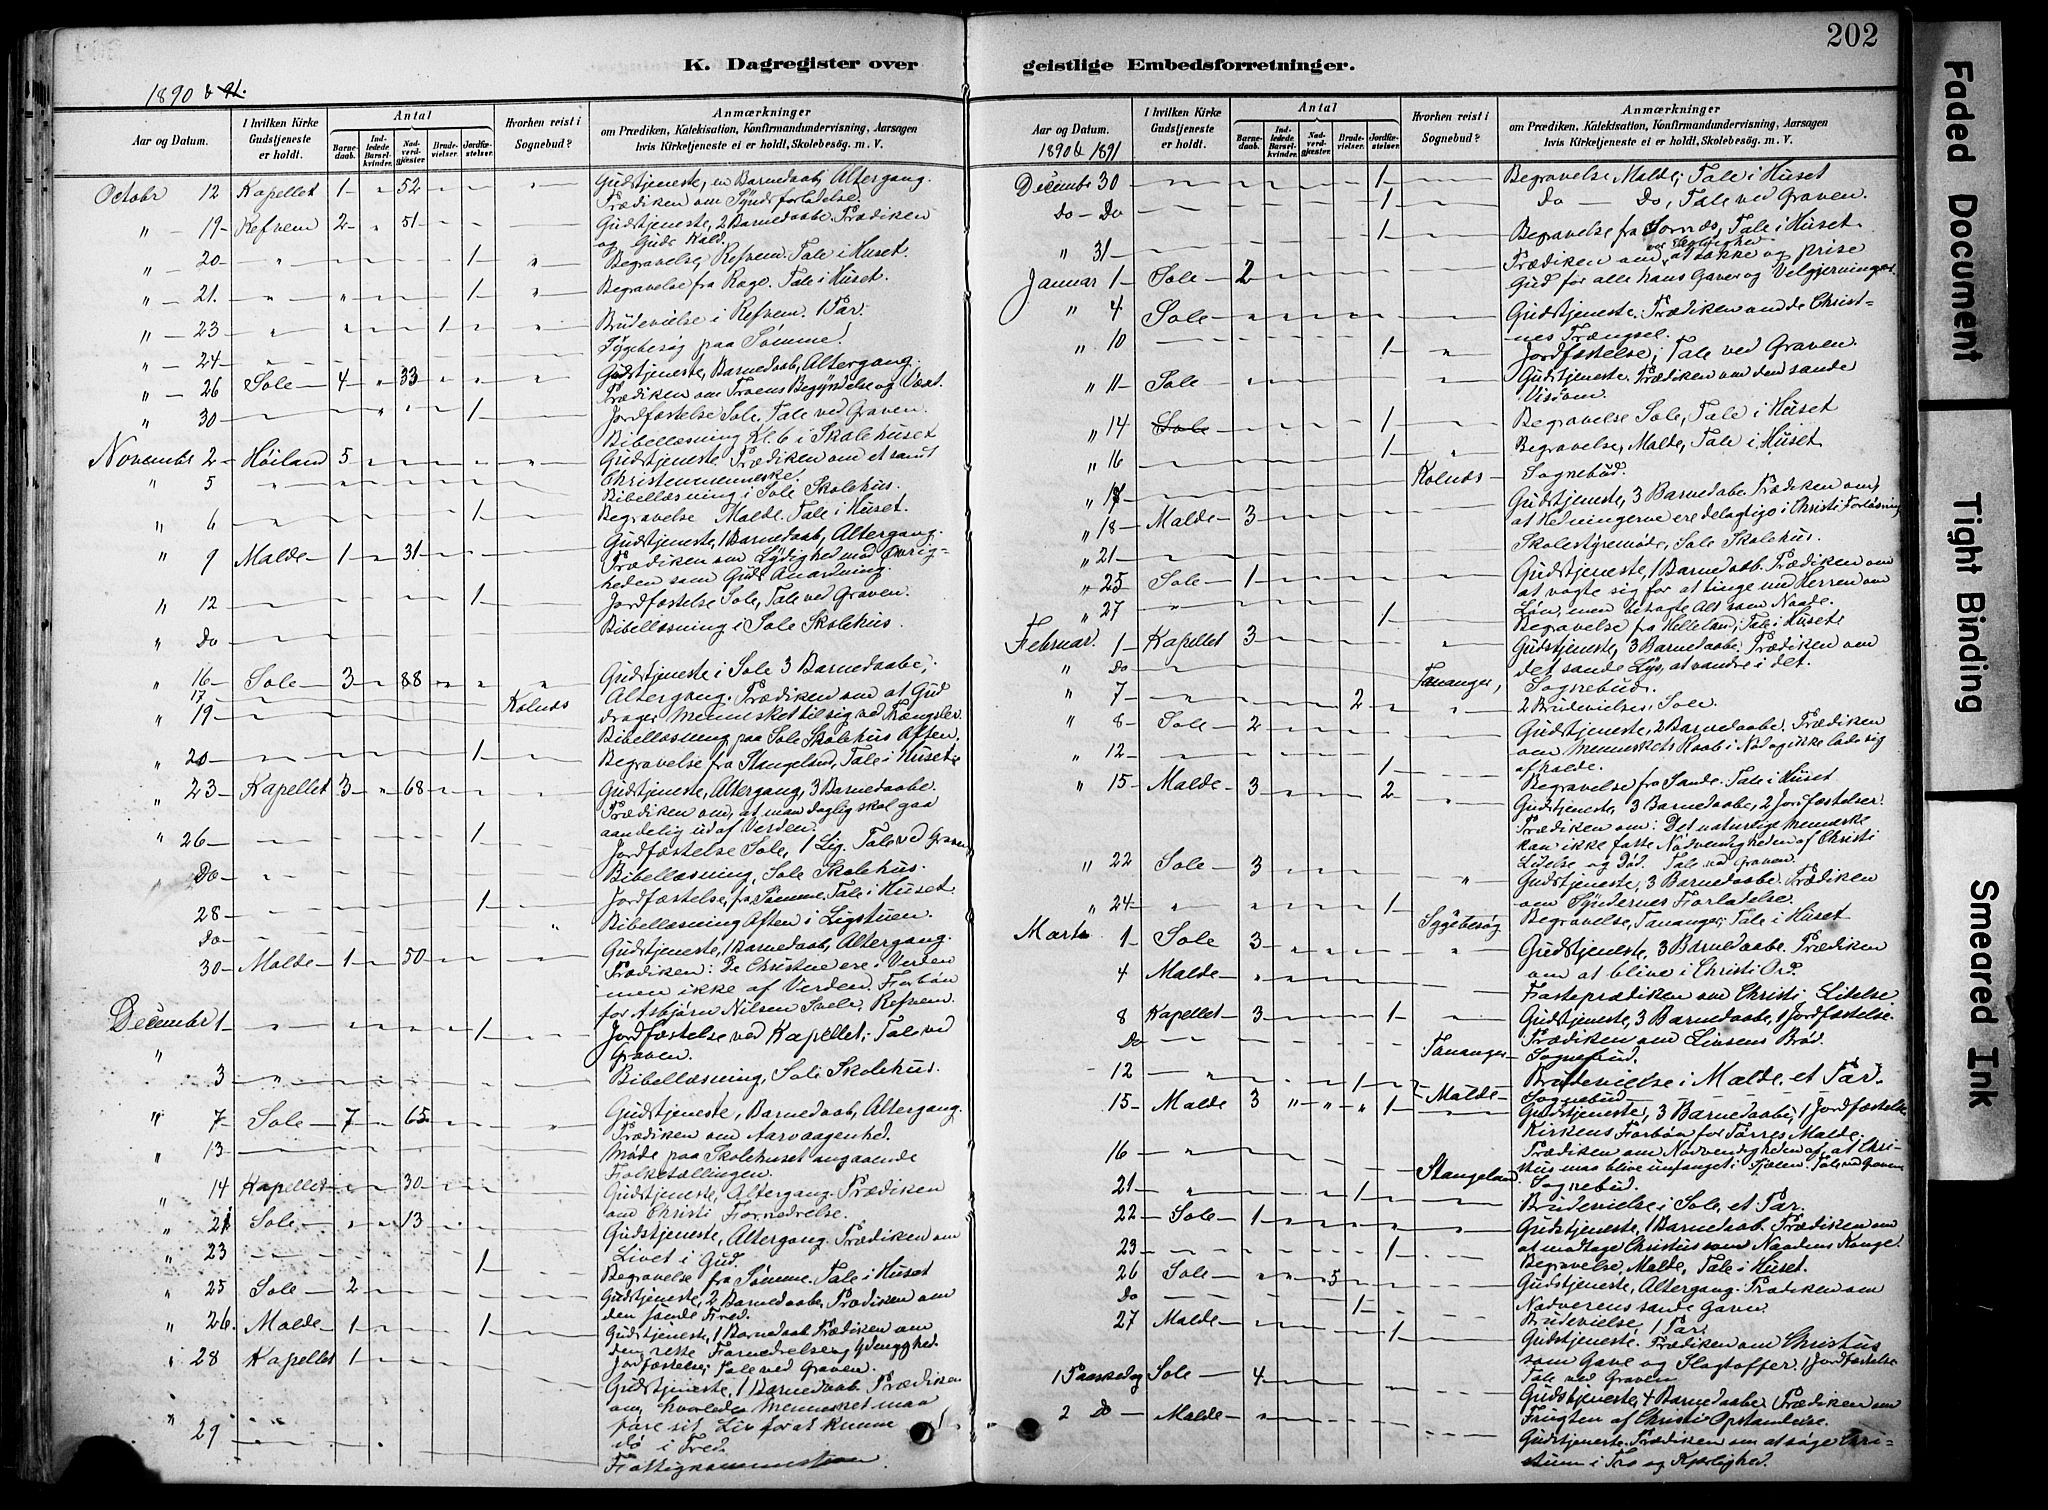 202
K. Dagregister over geistlige Embedsforretninger.
1890 & 91.
Aar og Datum.
I hvilken Kirke Gudstjeneste er holdt.
Antal
Barnedaab.
Indledede Barselkvinder.
Nadverdgjæster
Brudevielser.
Jordfæstelser.
Hvorhen reist i Sognebud?
Anmærkninger
om Prædiken, Katekisation, Konfirmandundervisning, Aarsagen
hvis Kirketjeneste ei er holdt, Skolebesøg. m. V.
Octobr 12 Kapellet 1 " 52 Gudstjeneste, en Barnedaab, Altergang.
Prædiken om Syndsforladelse.
" 19 Refvem 2 " 51 Gudstjeneste, 2 Barnedaabe Prædiken
og Guds Kald.
" 20 1 Begravelse, Refvem. Tale i Huset.
" 21. 1 Begravelse fra Rage. Tale i Huset.
" 23 1 Brudevielse i Refvem. 1 Par.
" 24 Sygebesøg paa Sømme.
" 26 Sole 4 " 33 Gudstjeneste, Barnedaab, Altergang.
Prædiken om Troens Begyndelse og Væxt.
" 30 1 Jordfæstelse Sole, Tale ved Graven.
Bibellæsning Kl. 6 i Skolehuset
Novembr 2 Høiland 5 Gudstjeneste. Prædiken om et sandt
Christenmenneske.
" 5 Bibellæsning i Sole Skolehus.
" 6 1 Begravelse Malde. Tale i Huset.
" 9 Malde 1 " 31 Gudstjeneste, 1 Barnedaab, Altergang.
Prædiken om Lydighed mod Øvrig-
heden som Guds Anordning.
" 12 1 Jordfæstelse Sole, Tale ved Graven.
" Do Bibellæsning i Sole Skolehus.
" 16 Sole 3 " 88 Gudstjeneste i Sole 3 Barnedaabe,
17 Kolnæs Altergang. Prædiken om at Gud
" 19 drager Mennesket til sig ved Trængsler.
Bibellæsning paa Sole Skolehus Aften.
" 20 1 Begravelse fra Stangeland, Tale i Huset
" 23 Kapellet 3 " 68 Gudstjeneste, Altergang, 3 Barnedaabe.
Prædiken om, at man daglig skal gaa
aandelig ud af Verden.
" 26 1 Jordfæstelse Sole, 1 Lig. Tale ved Graven
" Do Bibellæsning, Sole Skolehus.
28 1 Jordfæstelse, fra Sømme, Tale i Huset.
Do Bibellæsning Aften i Ligstuen.
30 Malde 1 " 50 Gudstjeneste, 1 Barnedaab, Altergang.
Prædiken: De Christne ere i Verden
men ikke af Verden. Forbøn
for Asbjørn Nilsen Svele, Refvem.
Decembr 1 1 Jordfæstelse ved Kapellet; Tale ved
Graven.
3 Bibellæsning, Sole Skolehus.
" 7 Sole 7 " 65 Gudstjeneste, Barnedaab, Altergang.
Prædiken om Aarvaagenhed.
" 13 Møde paa Skolehuset angaaende
Folketællingen.
" 14 Kapellet 30 Gudstjeneste, Altergang. Prædiken
om Christi Fornedrelse.
" 21 Sole 13 Gudstjeneste, Altergang. Prædiken om
Livet i Gud.
" 23 1 Begravelse fra Sømme. Tale i Huset
" 25 Sole 2 Gudstjeneste, 2 Barnedaabe, Prædiken om
den sande Fred.
" 26. Malde 1 1 Gudstjeneste, 1 Barnedaab Prædiken om
den rette Fornedrelse og Ydmyghed.
Jordfæstelse; Tale ved Graven.
" 28 Kapellet 1 Gudstjeneste, 1 Barnedaab. Prædiken
om, hvorledes Mennesket maa
føre sit Liv for at kunne
dø i Fred.
" 29 Fattigkommission.
Aar og Datum.
1890 & 1891
I hvilken Kirke Gudstjeneste er holdt.
Antal
Barnedaab.
Indledede Barselkvinder.
Nadverdgjæster.
Brudevielser.
Jordfæstelser.
Hvorhen reist i Sognebud?
Anmærkninger
om Prædiken, Katekisation, Konfirmandundervisning, Aarsagen
hvis Kirketjeneste ei er holdt, Skolebesøg. m. V.
Decembr 30 1 Begravelse Malde; Tale i Huset
Do - Do 1 Do - Do, Tale ved Graven.
" 31 1 Begravelse fra Jornæs, Tale i Huset.
Januar 1 Sole 2 Prædiken om at takke og prise
Gud for alle hans Gaver og Velgjerninger.
" 4 Sole Gudstjeneste. Prædiken om de Christ-
nes Trængsel.
" 10 1 Jordfæstelse; Tale ved Graven.
" 11 Sole Gudstjeneste. Prædiken om den sande
Visdom.
" 14 Sole 1 Begravelse Sole, Tale i Huset
" 16 1 Begravelse, Malde, Tale i Huset
" 17 Kolnæs Sognebud.
" 18 Malde 3 Gudstjeneste, 3 Barnedaabe. Prædiken om,
at Hedningerne ere delagtige i Christi Forløsning
" 21 Skolestyremøde, Sole Skolehus.
" 25 Sole 1 Gudstjeneste, 1 Barnedaab. Prædiken om
at vogte sig for at tinge med Herren om
Løn, men betragte Alt som Naade.
" 27 1 Begravelse fra Helleland; Tale i Huset
Februar. 1 Kapellet 3 Gudstjeneste, 3 Barnedaabe. Prædiken om
det sande Lys, at vandre i det.
" Do Tananger, Sognebud.
" 7 2 2 Brudevielser, Sole.
" 8 Sole 2 Gudstjeneste, 2 Barnedaabe. Prædiken
om Menneskets Raab i Nød og ikke lade sig
afholde.
" 12 1 Begravelse fra Sande. Tale i Huset
" 15 Malde 3 2 Gudstjeneste, 3 Barnedaabe, 2 Jordfæstelser.
Prædiken om: Det naturlige Menneske
kan ikke fatte Nødvendigheden af Christi
Lidelse og Død. Tale ved Graven.
" 22 Sole 3 Gudstjeneste, 3 Barnedaabe. Prædiken
om Syndernes Forladelse.
" 24 1 Begravelse, Tananger; Tale i Huset
Marts 1 Sole 3 Sygebesøg Gudstjeneste, 3 Barnedaabe. Prædiken
om at blive i Christi Ord.
4 Malde Fasteprædiken om Christi Lidelse.
8 Kapellet 3 1 Gudstjeneste, 3 Barnedaabe, 1 Jordfæstelse.
Prædiken om Livsens Brød.
Do Tananger Sognebud.
12 1 Brudevielse i Malde. et Par.
Malde Sognebud
15 Malde 3 " " " 1 Gudstjeneste, 3 Barnedaabe, 1 Jordfæstelse
Kirkens Forbøn for Tørres Malde.
Prædiken om Nødvendigheden af, at Chri-
stus maa blive undfanget i Sjælen. Tale ved Graven
16 Stangeland Sognebud.
21 1 Brudevielse i Sole, et Par.
22 Sole 1 Gudstjeneste, 1 Barnedaab. Prædiken om
at modtage Christus som Naadens Konge.
23 1 Begravelse, Malde, Tale i Huset.
26 Sole 5 Gudstjeneste, Altergang. Prædiken om
Nadverens sande Gavn.
Do 1 Brudevielse 1 Par.
27 Malde 1 Gudstjeneste. Prædiken om Christus
som Gave og Slagtoffer. 1 Jordfæstelse
Tale ved Graven
1 Paaskedag Sole 4 Gudstjeneste, 4 Barnedaabe. Prædiken om
Frugten af Christi Opstandelse.
2 Do Malde Gudstjeneste. Prædiken om at søge Chri-
stum i Tro og Kjærlighed.
Faded Document
Tight Binding
Smeared Ink